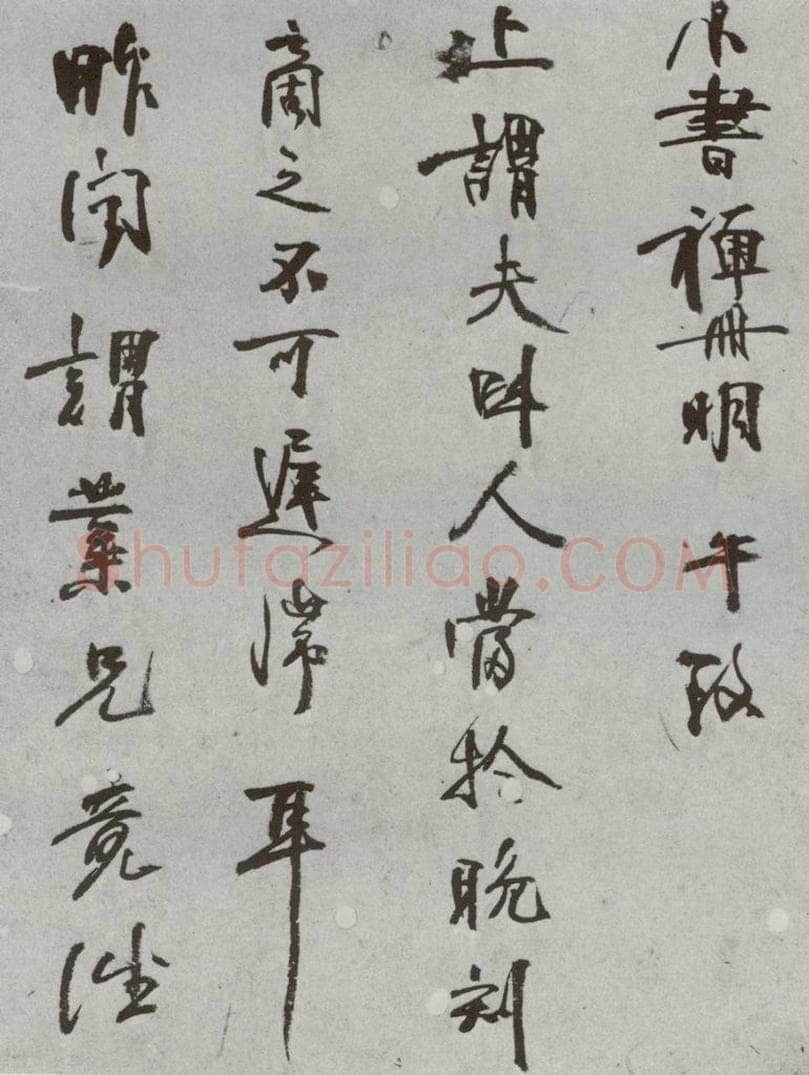 小書禪冊明午致
上謂夫叫人當於晚刻
商之不可遲滯耳
昨聞謂業兄竟往
Shufaziliao.COM